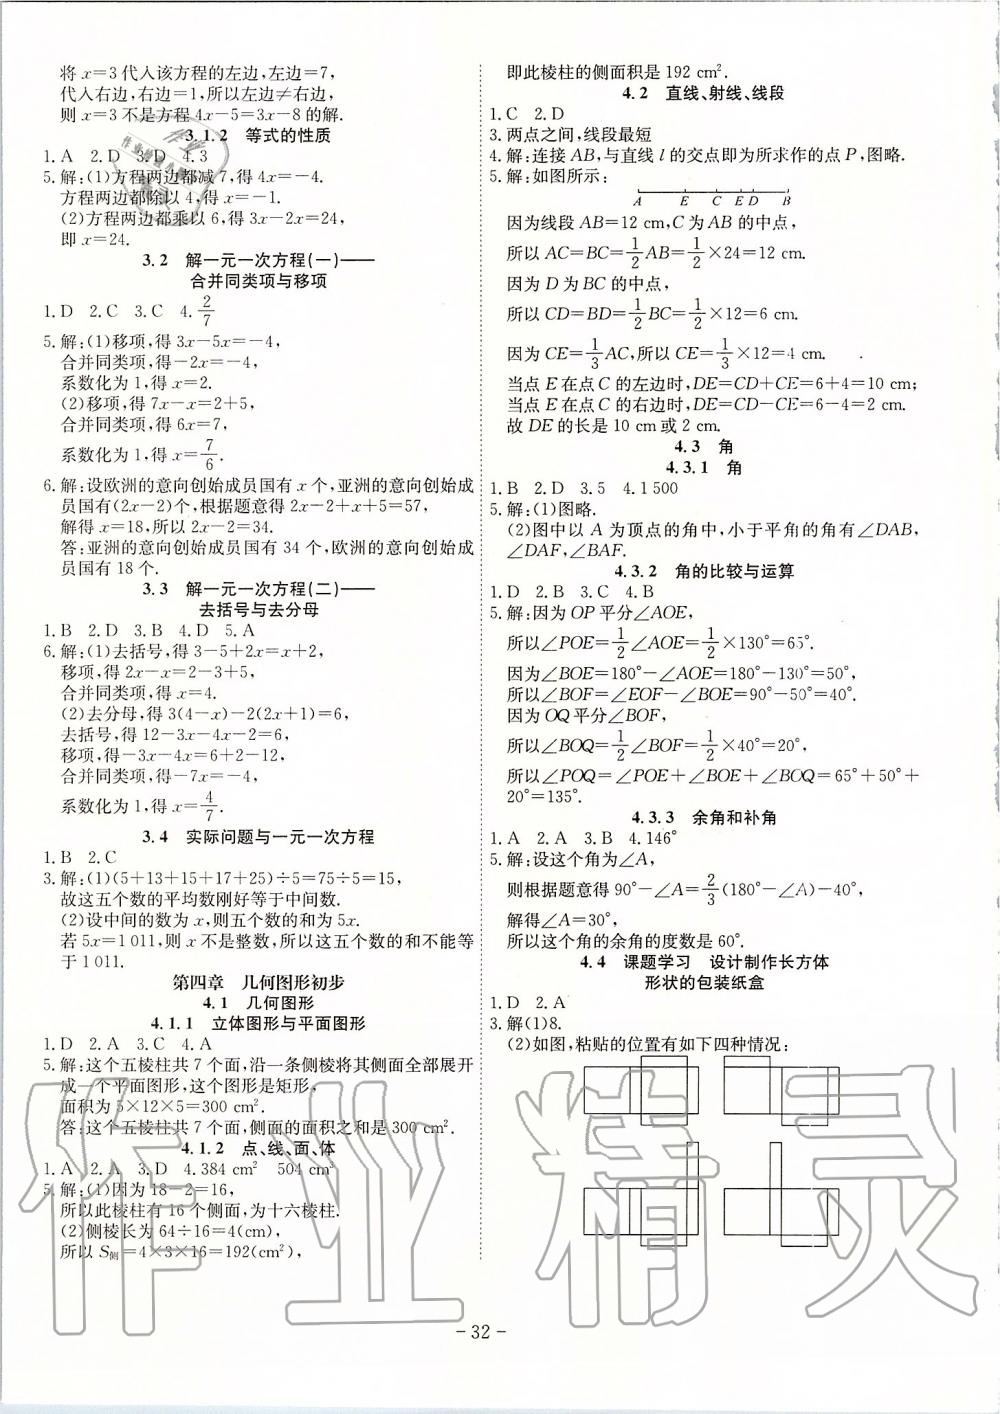 将 x=3 代入该方程的左边,左边=7,
代入右边,右边=1,所以左边≠右边,
则 x=3 不是方程 4x-5=3x-8 的解.
3.1.2 等式的性质
1.A 2.D 3.D 4.3
5.解:(1)方程两边都减 7,得 4x=-4.
方程两边都除以 4,得 x=-1.
(2)方程两边都乘以 6,得 3x-2x=24,
即 x=24.
3.2 解一元一次方程(一)——
合并同类项与移项
1.D 2.C 3.C 4.2/7
5.解:(1)移项,得 3x-5x=-4,
合并同类项,得-2x=-4,
系数化为 1,得 x=2.
(2)移项,得 7x-x=2+5,
合并同类项,得 6x=7,
系数化为 1,得 x=7/6.
6.解:设欧洲的意向创始成员国有 x 个,亚洲的意向创始成
员国有(2x-2)个,根据题意得 2x-2+x+5=57,
解得 x=18,所以 2x-2=34.
答:亚洲的意向创始成员国有 34 个,欧洲的意向创始成
员国有 18 个.
3.3 解一元一次方程(二)——
去括号与去分母
1.B 2.D 3.B 4.D 5.A
6.解:(1)去括号,得 3-5+2x=x+2,
移项,得 2x-x=2-3+5,
合并同类项,得 x=4.
(2)去分母,得 3(4-x)-2(2x+1)=6,
去括号,得 12-3x-4x-2=6,
移项,得-3x-4x=6+2-12,
合并同类项,得-7x=-4,
系数化为 1,得 x=4/7.
3.4 实际问题与一元一次方程
1.B 2.C
3.解:(1)(5+13+15+17+25)÷5=75÷5=15,
故这五个数的平均数刚好等于中间数.
(2)设中间的数为 x,则五个数的和为 5x.
若 5x=1 011,则 x 不是整数,所以这五个数的和不能等
于 1 011.
第四章 几何图形初步
4.1 几何图形
4.1.1 立体图形与平面图形
1.D 2.A 3.C 4.A
5.解:这个五棱柱共 7 个面,沿一条侧棱将其侧面全部展开
成一个平面图形,这个图形是矩形,
面积为 5×12×5=300 cm².
答:这个五棱柱共 7 个面,侧面的面积之和是 300 cm².
4.1.2 点、线、面、体
1.A 2.A 3.D 4.384 cm² 504 cm³
5.解:(1)因为 18-2=16,
所以此棱柱有 16 个侧面,为十六棱柱.
(2)侧棱长为 64÷16=4(cm),
所以 S侧=4×3×16=192(cm²),
即此棱柱的侧面积是 192 cm².
4.2 直线、射线、线段
1.C 2.D
3.两点之间,线段最短
4.解:连接 AB,与直线 l 的交点即为所求作的点 P,图略.
5.解:如图所示:
A E C E D B
因为线段 AB=12 cm,C 为 AB 的中点,
所以 AC=BC=1/2AB=1/2×24=12 cm.
因为 D 为 BC 的中点,
所以 CD=BD=1/2BC=1/2×12=6 cm.
因为 CE=1/3AC,所以 CE=1/3×12=4 cm.
当点 E 在点 C 的左边时,DE=CD+CE=6+4=10 cm;
当点 E 在点 C 的右边时,DE=CD-CE=6-4=2 cm.
故 DE 的长是 10 cm 或 2 cm.
4.3 角
4.3.1 角
1.B 2.D 3.5 4.1 500
5.解:(1)图略.
(2)图中以 A 为顶点的角中,小于平角的角有∠DAB,
∠DAF,∠BAF.
4.3.2 角的比较与运算
1.D 2.B 3.C 4.B
5.解:因为 OP 平分∠AOE,
所以∠POE=1/2∠AOE=1/2×130°=65°.
因为∠BOE=180°-∠AOE=180°-130°=50°,
所以∠BOF=∠EOF-∠BOE=90°-50°=40°.
因为 OQ 平分∠BOF,
所以∠BOQ=1/2∠BOF=1/2×40°=20°,
所以∠POQ=∠POE+∠BOE+∠BOQ=65°+50°+
20°=135°.
4.3.3 余角和补角
1.A 2.A 3.B 4.146°
5.解:设这个角为∠A,
则根据题意得 90°-∠A=2/3(180°-∠A)-40°,
解得∠A=30°,
所以这个角的余角的度数是 60°.
4.4 课题学习 设计制作长方体
形状的包装纸盒
1.D 2.A
3.解(1)8.
(2)如图,粘贴的位置有如下四种情况:
作业精灵
- 32 -